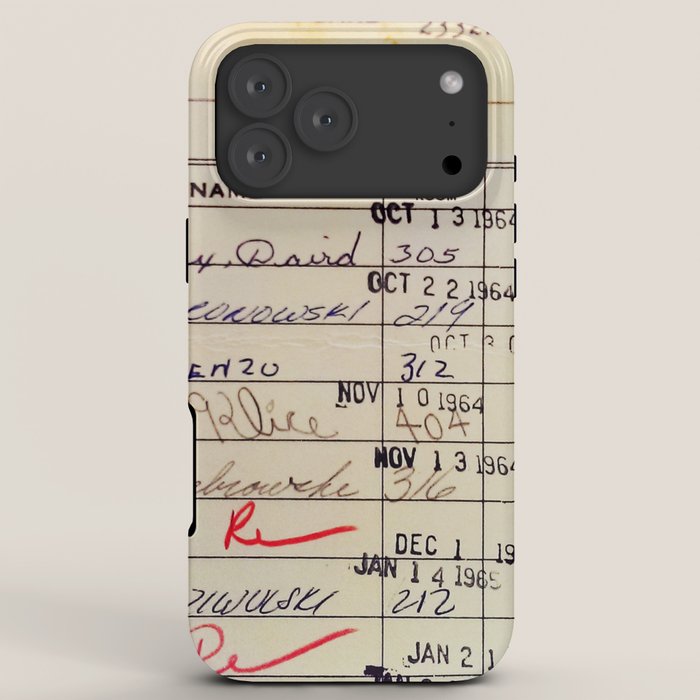 23321
NAM
ROOM
OCT 13 1964
y, David 305
OCT 22 1964
CONOWSKI 219
OCT 3 0
ENZO 312
NOV 10 1964
Klice 404
NOV 13 1964
ebrowske 316
Re
DEC 1 19
JAN 14 1965
ZIWULSKI 212
De
JAN 21